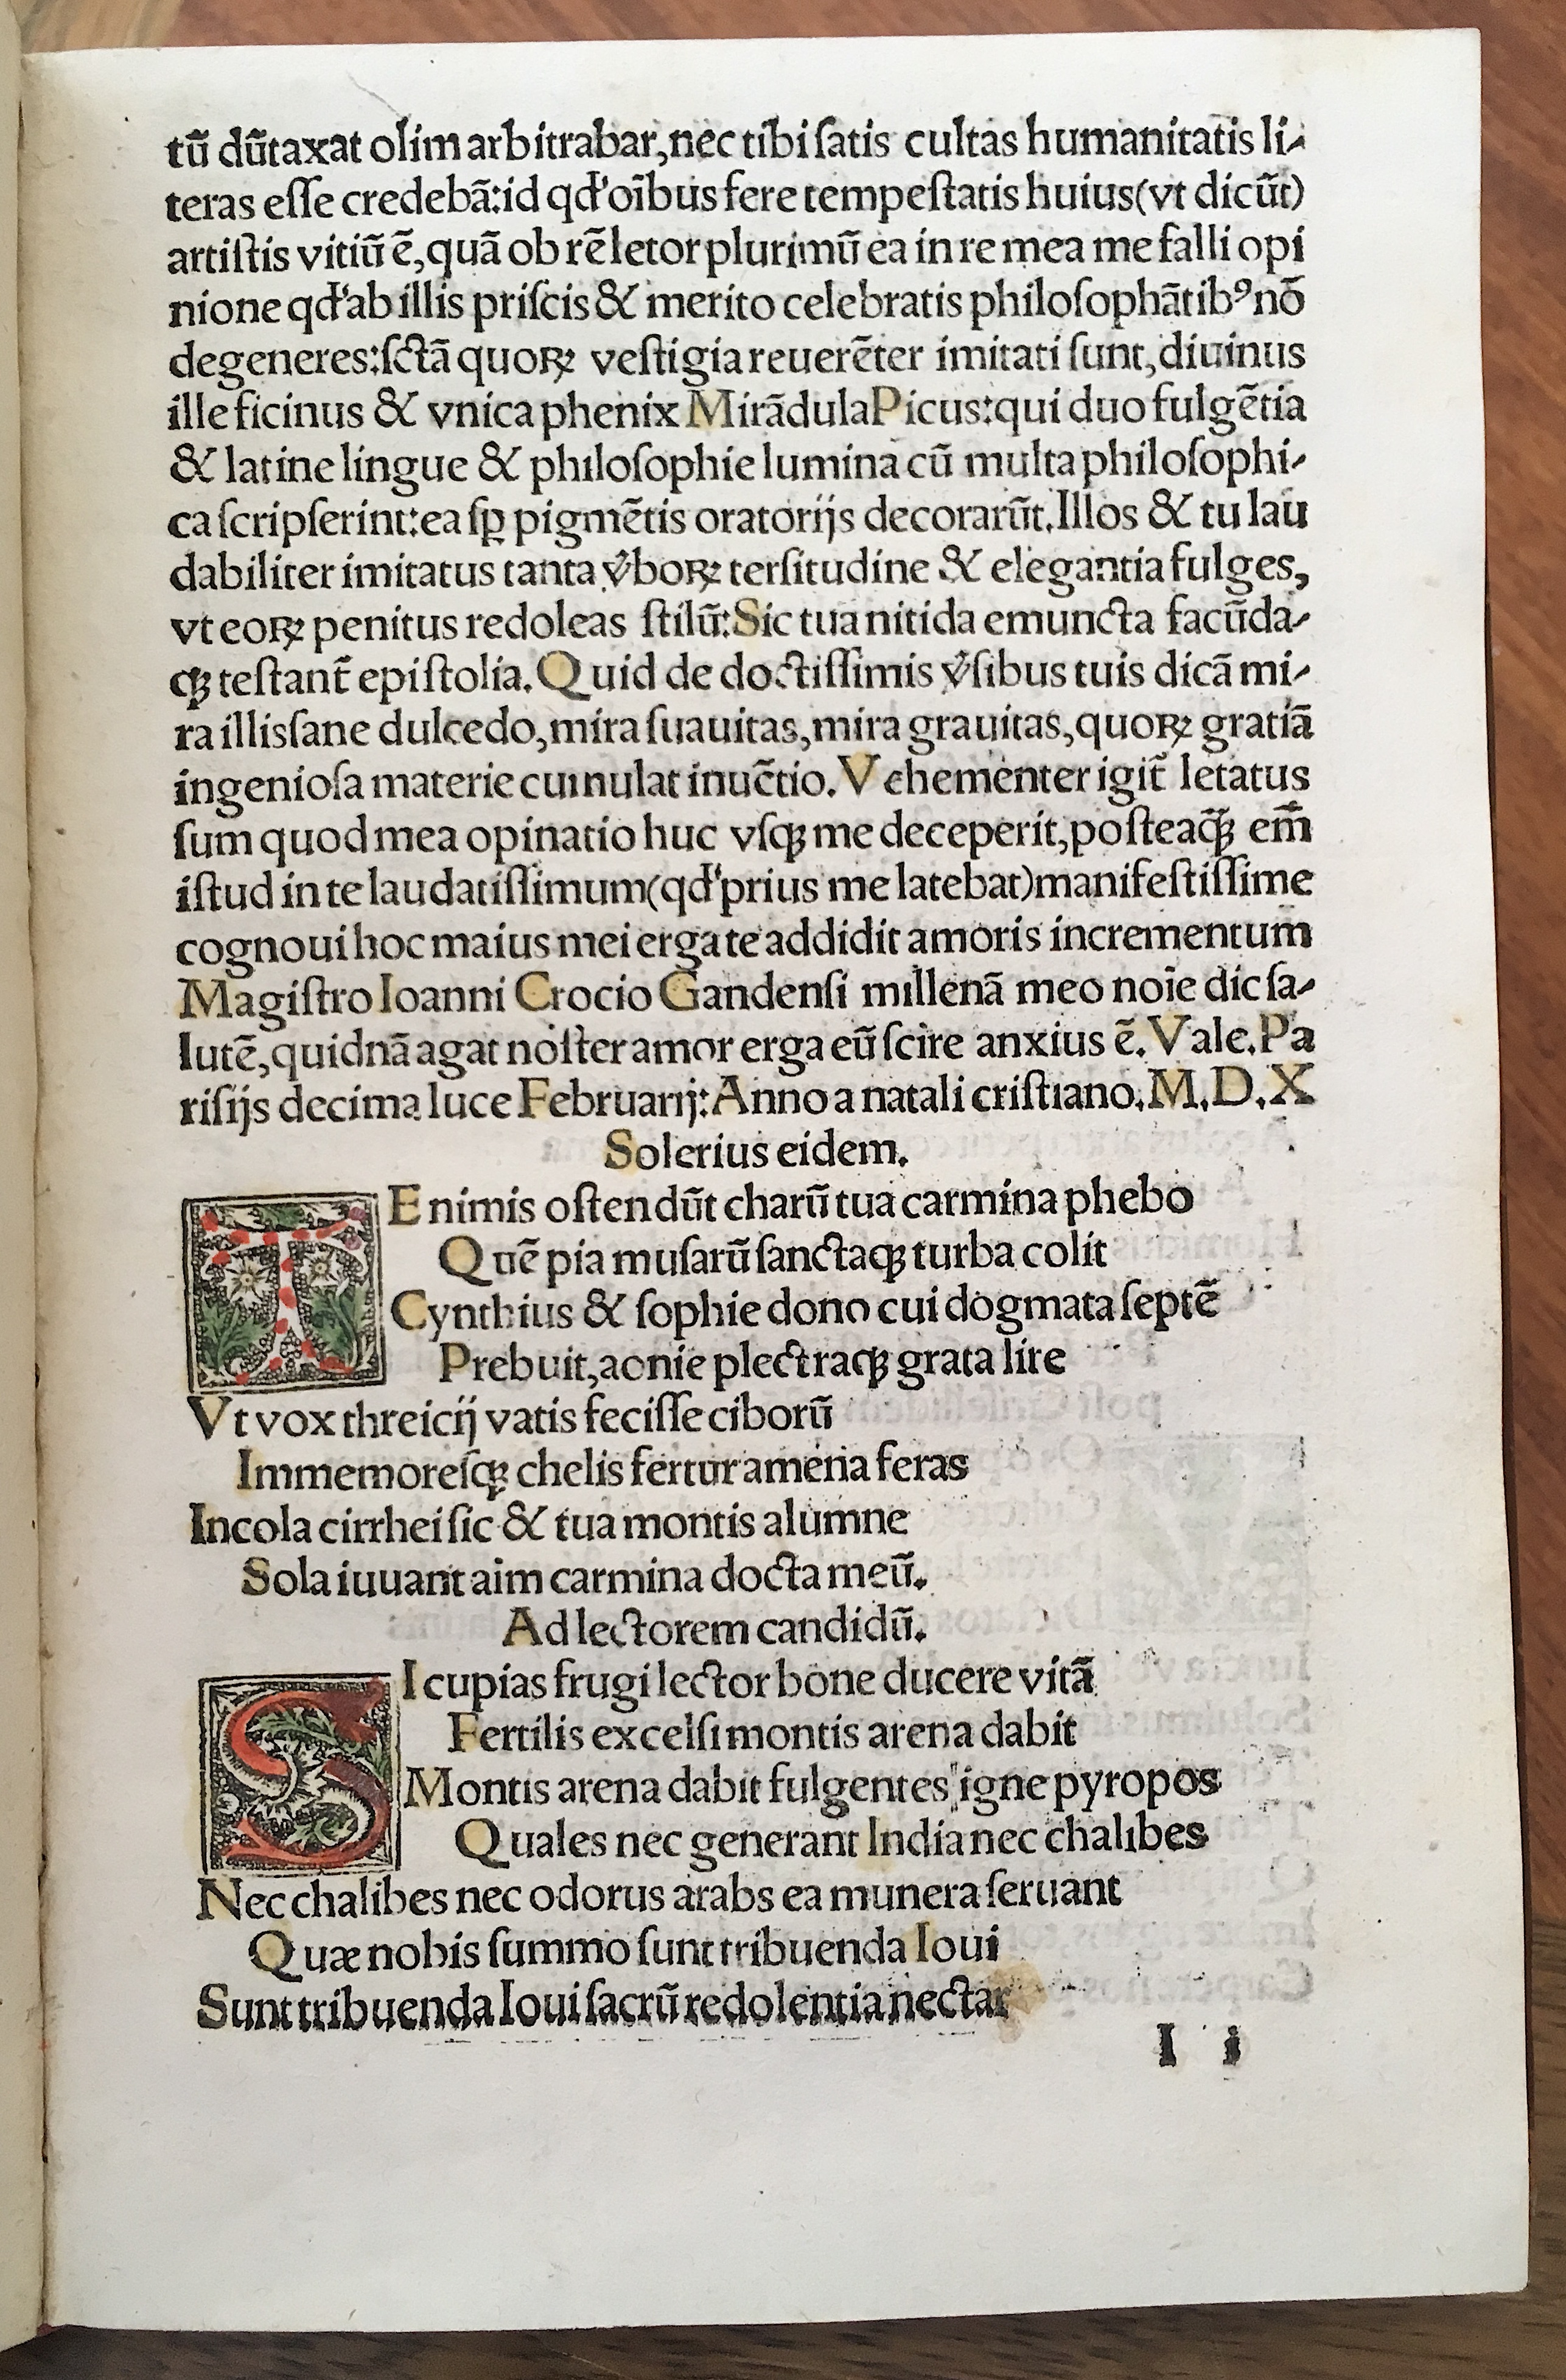 tū dūtaxat olim arbitrabar,nec tibi ſatis cultas humanitatis li-
teras eſſe credebā:id qđ oībus fere tempeſtatis huius(vt dicūt)
artiſtis vitiū ē,quā ob rē letor plurimū ea in re mea me falli opi
nione qđ ab illis priſcis & merito celebratis philoſophātibꝰ nō
degeneres:ſctā quoꝝ veſtigia reuerēter imitati ſunt,diuinus
ille ficinus & vnica phenix Mirādula Picus:qui duo fulgētia
& latine lingue & philoſophie lumina cū multa philoſophi-
ca ſcripſerint:ea ſꝑ pigmētis oratorijs decorarūt.Illos & tu lau
dabiliter imitatus tanta v̉boꝝ terſitudine & elegantia fulges,
vt eoꝝ penitus redoleas ſtilū:Sic tua nitida emuncta facūda-
qꝫ teſtant̄ epiſtolia.Quid de doctiſſimis v̉ſibus tuis dicā mi-
ra illis ſane dulcedo,mira ſuauitas,mira grauitas,quoꝝ gratiā
ingenioſa materie cumulat inuētio.Vehementer igit̄ letatus
ſum quod mea opinatio huc vſqꝫ me deceperit,poſteaq̄ꝫ em̄
iſtud in te laudatiſſimum(qđ prius me latebat)manifeſtiſſime
cognoui hoc maius mei erga te addidit amoris incrementum
Magiſtro Ioanni Crocio Gandenſi millenā meo noīe dic ſa-
lutē,quidnā agat noſter amor erga eū ſcire anxius ē.Vale.Pa
riſijs decima luce Februarij:Anno a natali criſtiano.M.D.X
Solerius eidem.
TE nimis oſtendūt charū tua carmina phebo
Quē pia muſarū ſanctaqꝫ turba colit
Cynthius & ſophie dono cui dogmata ſeptē
Prebuit,aonie plectraqꝫ grata lire
Vt vox threicij vatis feciſſe ciborū
Immemoreſqꝫ chelis fertur ameña feras
Incola cirrhei ſic & tua montis alumne
Sola iuuant aim carmina docta meū.
Ad lectorem candidū.
SI cupias frugi lector bone ducere vitā
Fertilis excelſi montis arena dabit
Montis arena dabit fulgentes igne pyropos
Quales nec generant India nec chalibes
Nec chalibes nec odorus arabs ea munera ſeruant
Quæ nobis ſummo ſunt tribuenda Ioui
Sunt tribuenda Ioui ſacrū redolentia nectar
I i